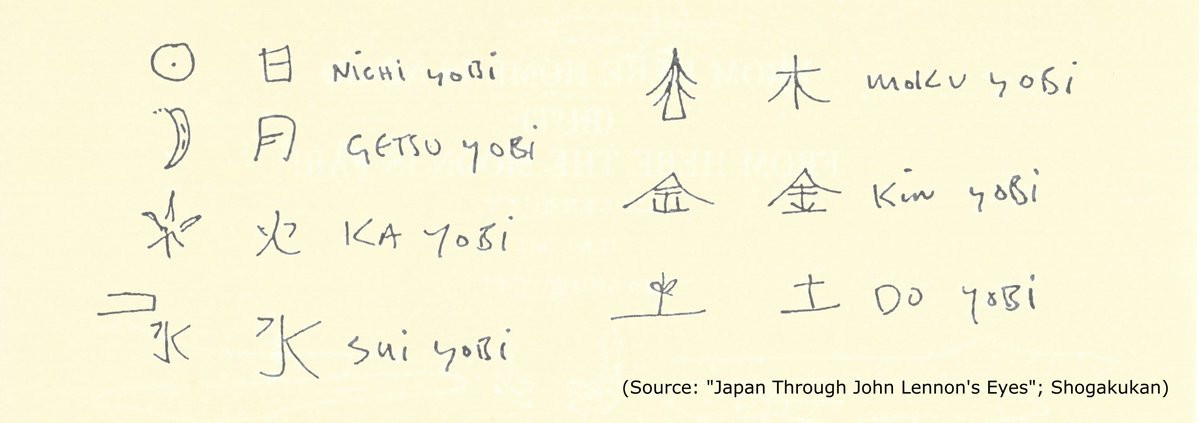 日 NiCHi YOBi
月 GETSU YOBi
火 KA YOBi
水 Sui YOBi
木 MOKU YOBi
金 Kin YOBi
土 DO YOBi
(Source: "Japan Through John Lennon's Eyes"; Shogakukan)